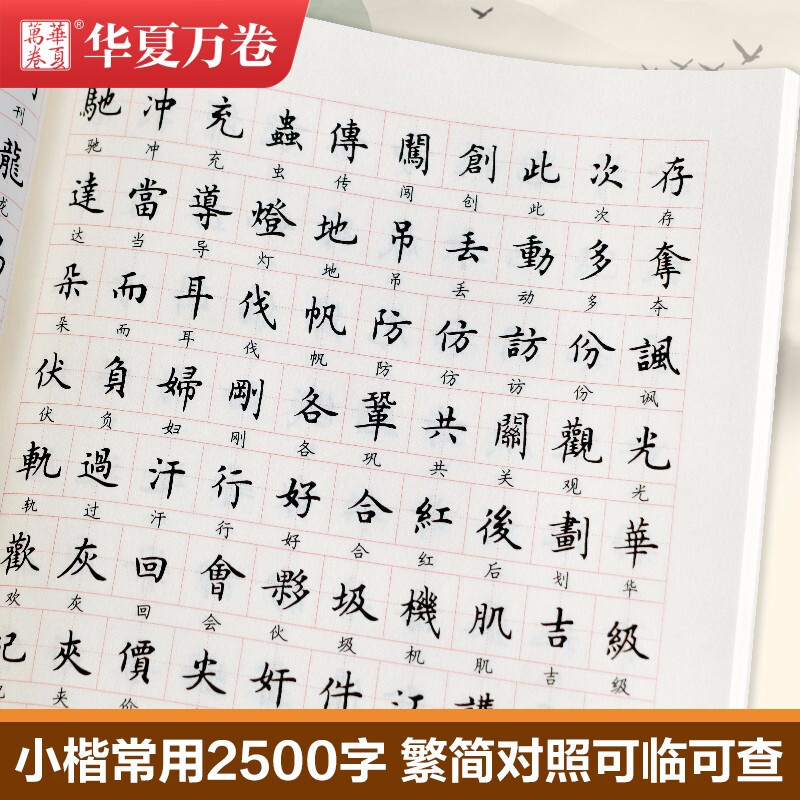 華夏萬卷
® 华夏万卷
刊
龍
馳 冲 充 蟲 傳 闖 創 此 次 存
驰 冲 充 虫 传 闯 创 此 次 存
達 當 導 燈 地 吊 丢 動 多 奪
达 当 导 灯 地 吊 丢 动 多 夺
朵 而 耳 伐 帆 防 仿 訪 份 諷
朵 而 耳 伐 帆 防 仿 访 份 讽
伏 負 婦 剛 各 鞏 共 關 觀 光
伏 负 妇 刚 各 巩 共 关 观 光
軌 過 汗 行 好 合 紅 後 劃 華
轨 过 汗 行 好 合 红 后 划 华
歡 灰 回 會 夥 圾 機 肌 吉 級
欢 灰 回 会 伙 圾 机 肌 吉 级
夾 價 尖 奸 件 江
夹 价
小楷常用2500字 繁简对照可临可查